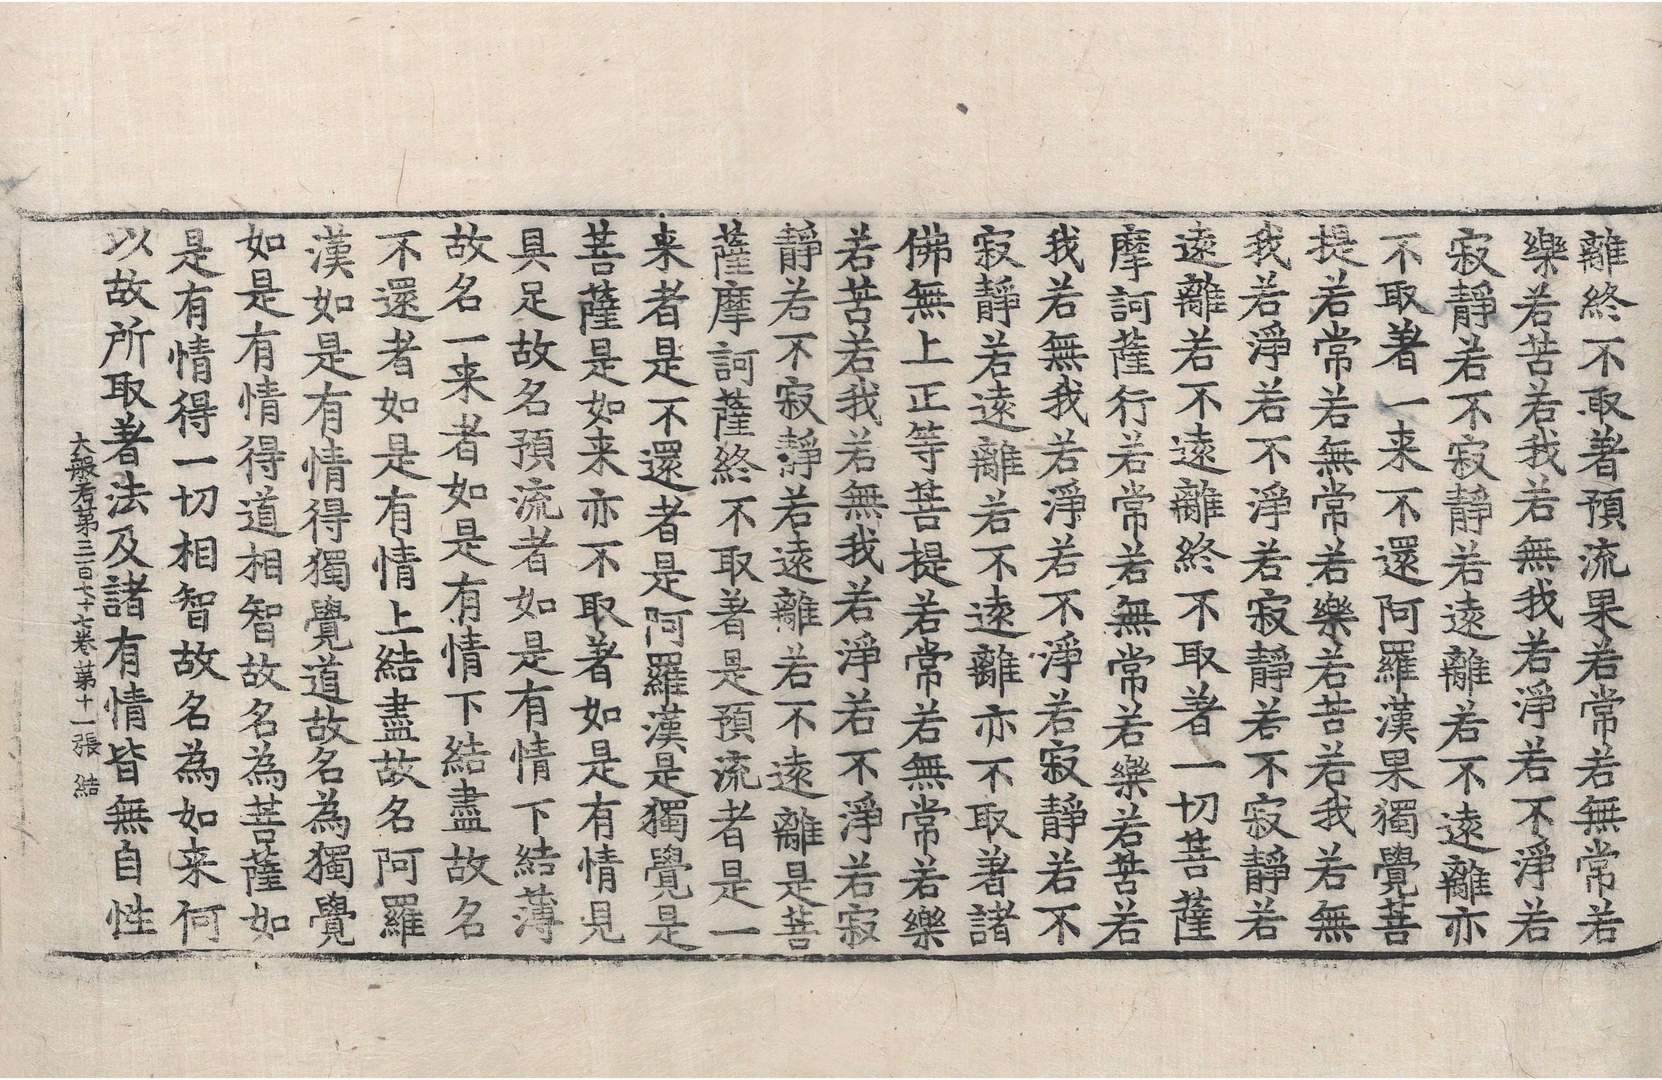 離終不取著預流果若常若無常若
樂若苦若我若無我若淨若不淨若
寂靜若不寂靜若遠離若不遠離亦
不取著一来不還阿羅漢果獨覺菩
提若常若無常若樂若苦若我若無
我若淨若不淨若寂靜若不寂靜若
遠離若不遠離終不取著一切菩薩
摩訶薩行若常若無常若樂若苦若
我若無我若淨若不淨若寂靜若不
寂靜若遠離若不遠離亦不取著諸
佛無上正等菩提若常若無常若樂
若苦若我若無我若淨若不淨若寂
靜若不寂靜若遠離若不遠離是菩
薩摩訶薩終不取著是預流者是一
来者是不還者是阿羅漢是獨覺是
菩薩是如来亦不取著如是有情見
具足故名預流者如是有情下結薄
故名一来者如是有情下結盡故名
不還者如是有情上結盡故名阿羅
漢如是有情得獨覺道故名為獨覺
如是有情得道相智故名為菩薩如
是有情得一切相智故名為如来何
以故所取著法及諸有情皆無自性
大般若第三百七十七卷 第十一張 結